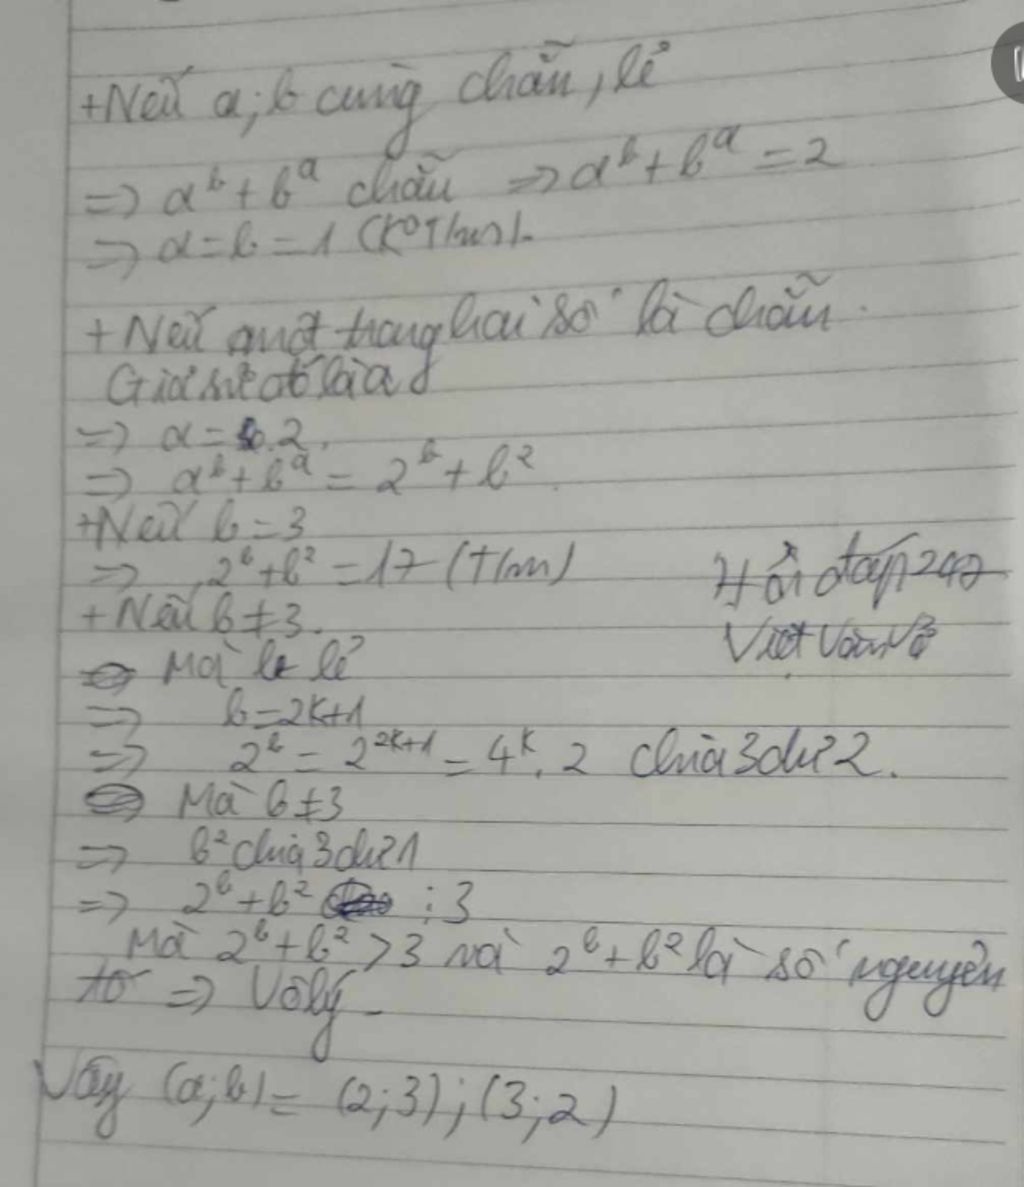 +Nếu a;b cùng chẵn, lẻ
=> a^b + b^a chẵn => a^b + b^a = 2
=> a = b = 1 (K°T/m).
+ Nếu một trong hai số là chẵn.
Giả sử đó là a
=> a = 2.
=> a^b + b^a = 2^b + b^2.
+Nếu b = 3
=> 2^b + b^2 = 17 (T/m)
Hỏi đáp 247
+ Nếu b ≠ 3.
Việt Văn Võ
Mà b lẻ
=> b = 2k+1
=> 2^b = 2^{2k+1} = 4^k . 2 chia 3 dư 2.
Mà b ≠ 3
=> b^2 chia 3 dư 1
=> 2^b + b^2 ⋮ 3
Mà 2^b + b^2 > 3 mà 2^b + b^2 là số nguyên
tố => Vô lý.
Vậy (a;b) = (2;3);(3;2)